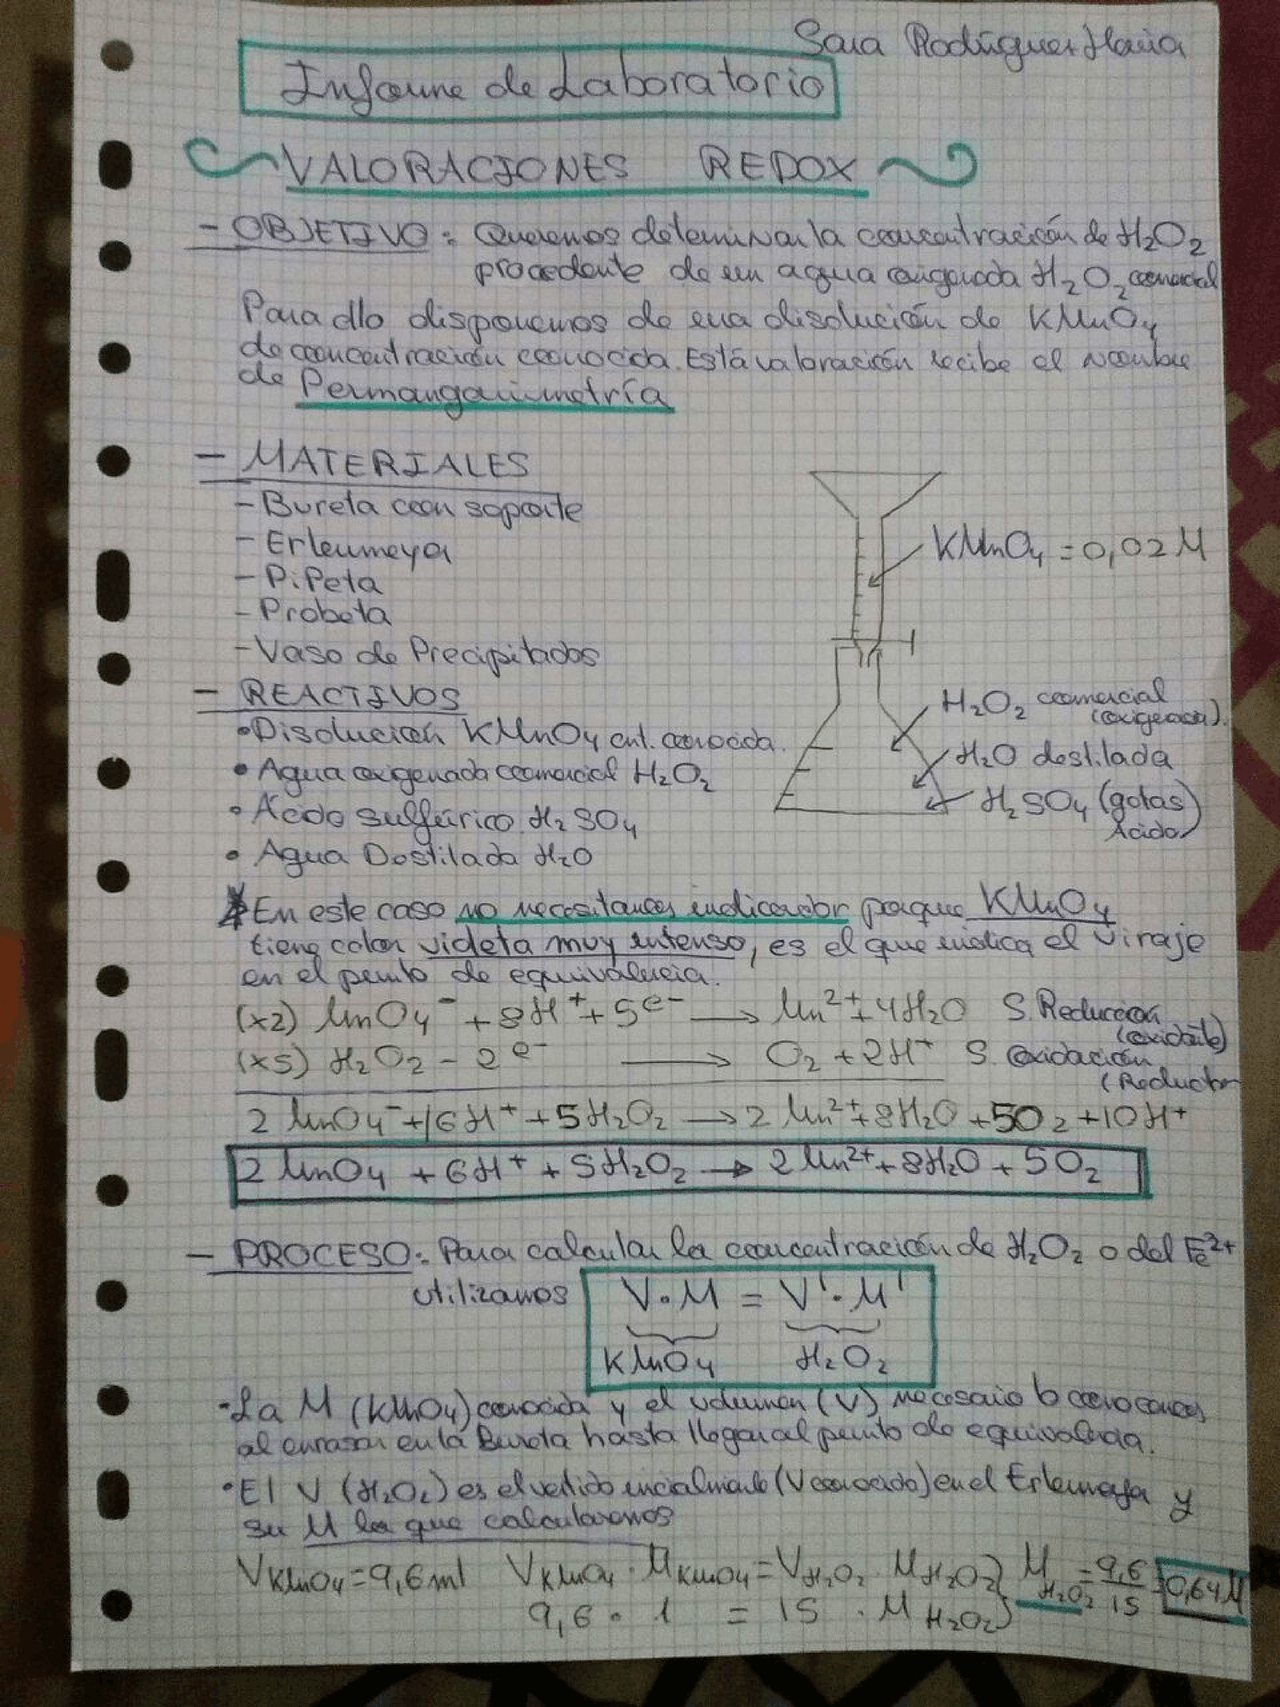 Sara Rodríguez
Informe de Laboratorio
VALORACIONES REDOX
- OBJETIVO: Queremos determinar la concentración de H₂O₂
procedente de un agua oxigenada H₂O₂ comercial
Para ello disponemos de una disolución de KMnO₄
de concentración conocida. Está valoración recibe el nombre
de Permanganimetría
- MATERIALES
- Bureta con soporte
- Erlenmeyer
- Pipeta
- Probeta
- Vaso de Precipitados
KMnO₄ = 0,02 M
- REACTIVOS
• Disolución KMnO₄ cnt. conocida.
• Agua oxigenada comercial H₂O₂
• Ácido sulfúrico H₂SO₄
• Agua Destilada H₂O
H₂O₂ comercial
(oxigenada).
H₂O destilada
H₂SO₄ (gotas)
Ácido
* En este caso no necesitamos indicador porque KMnO₄
tiene color violeta muy intenso, es el que indica el viraje
en el punto de equivalencia.
(x2) MnO₄⁻ + 8H⁺ + 5e⁻ → Mn²⁺ + 4H₂O S. Reducción
(oxidante)
(x5) H₂O₂ - 2e⁻ → O₂ + 2H⁺ S. Oxidación
(Reductor
2 MnO₄⁻ + 16H⁺ + 5H₂O₂ → 2 Mn²⁺ + 8H₂O + 5O₂ + 10H⁺
2 MnO₄ + 6H⁺ + 5H₂O₂ → 2Mn²⁺ + 8H₂O + 5O₂
- PROCESO: Para calcular la concentración de H₂O₂ o del Fe²⁺
utilizamos V·M = V'·M'
KMnO₄ H₂O₂
• La M (KMnO₄) conocida y el volumen (V) necesario lo conocemos
al enrasar en la Bureta hasta llegar al punto de equivalencia.
• El V (H₂O₂) es el vertido inicialmente (V conocido) en el Erlenmeyer y
su M la que calcularemos
V KMnO₄ = 9,6 ml V KMnO₄ · M KMnO₄ = V H₂O₂ · M H₂O₂ } M H₂O₂ = 9,6/15 = 0,64M
9,6 · 1 = 15 · M H₂O₂